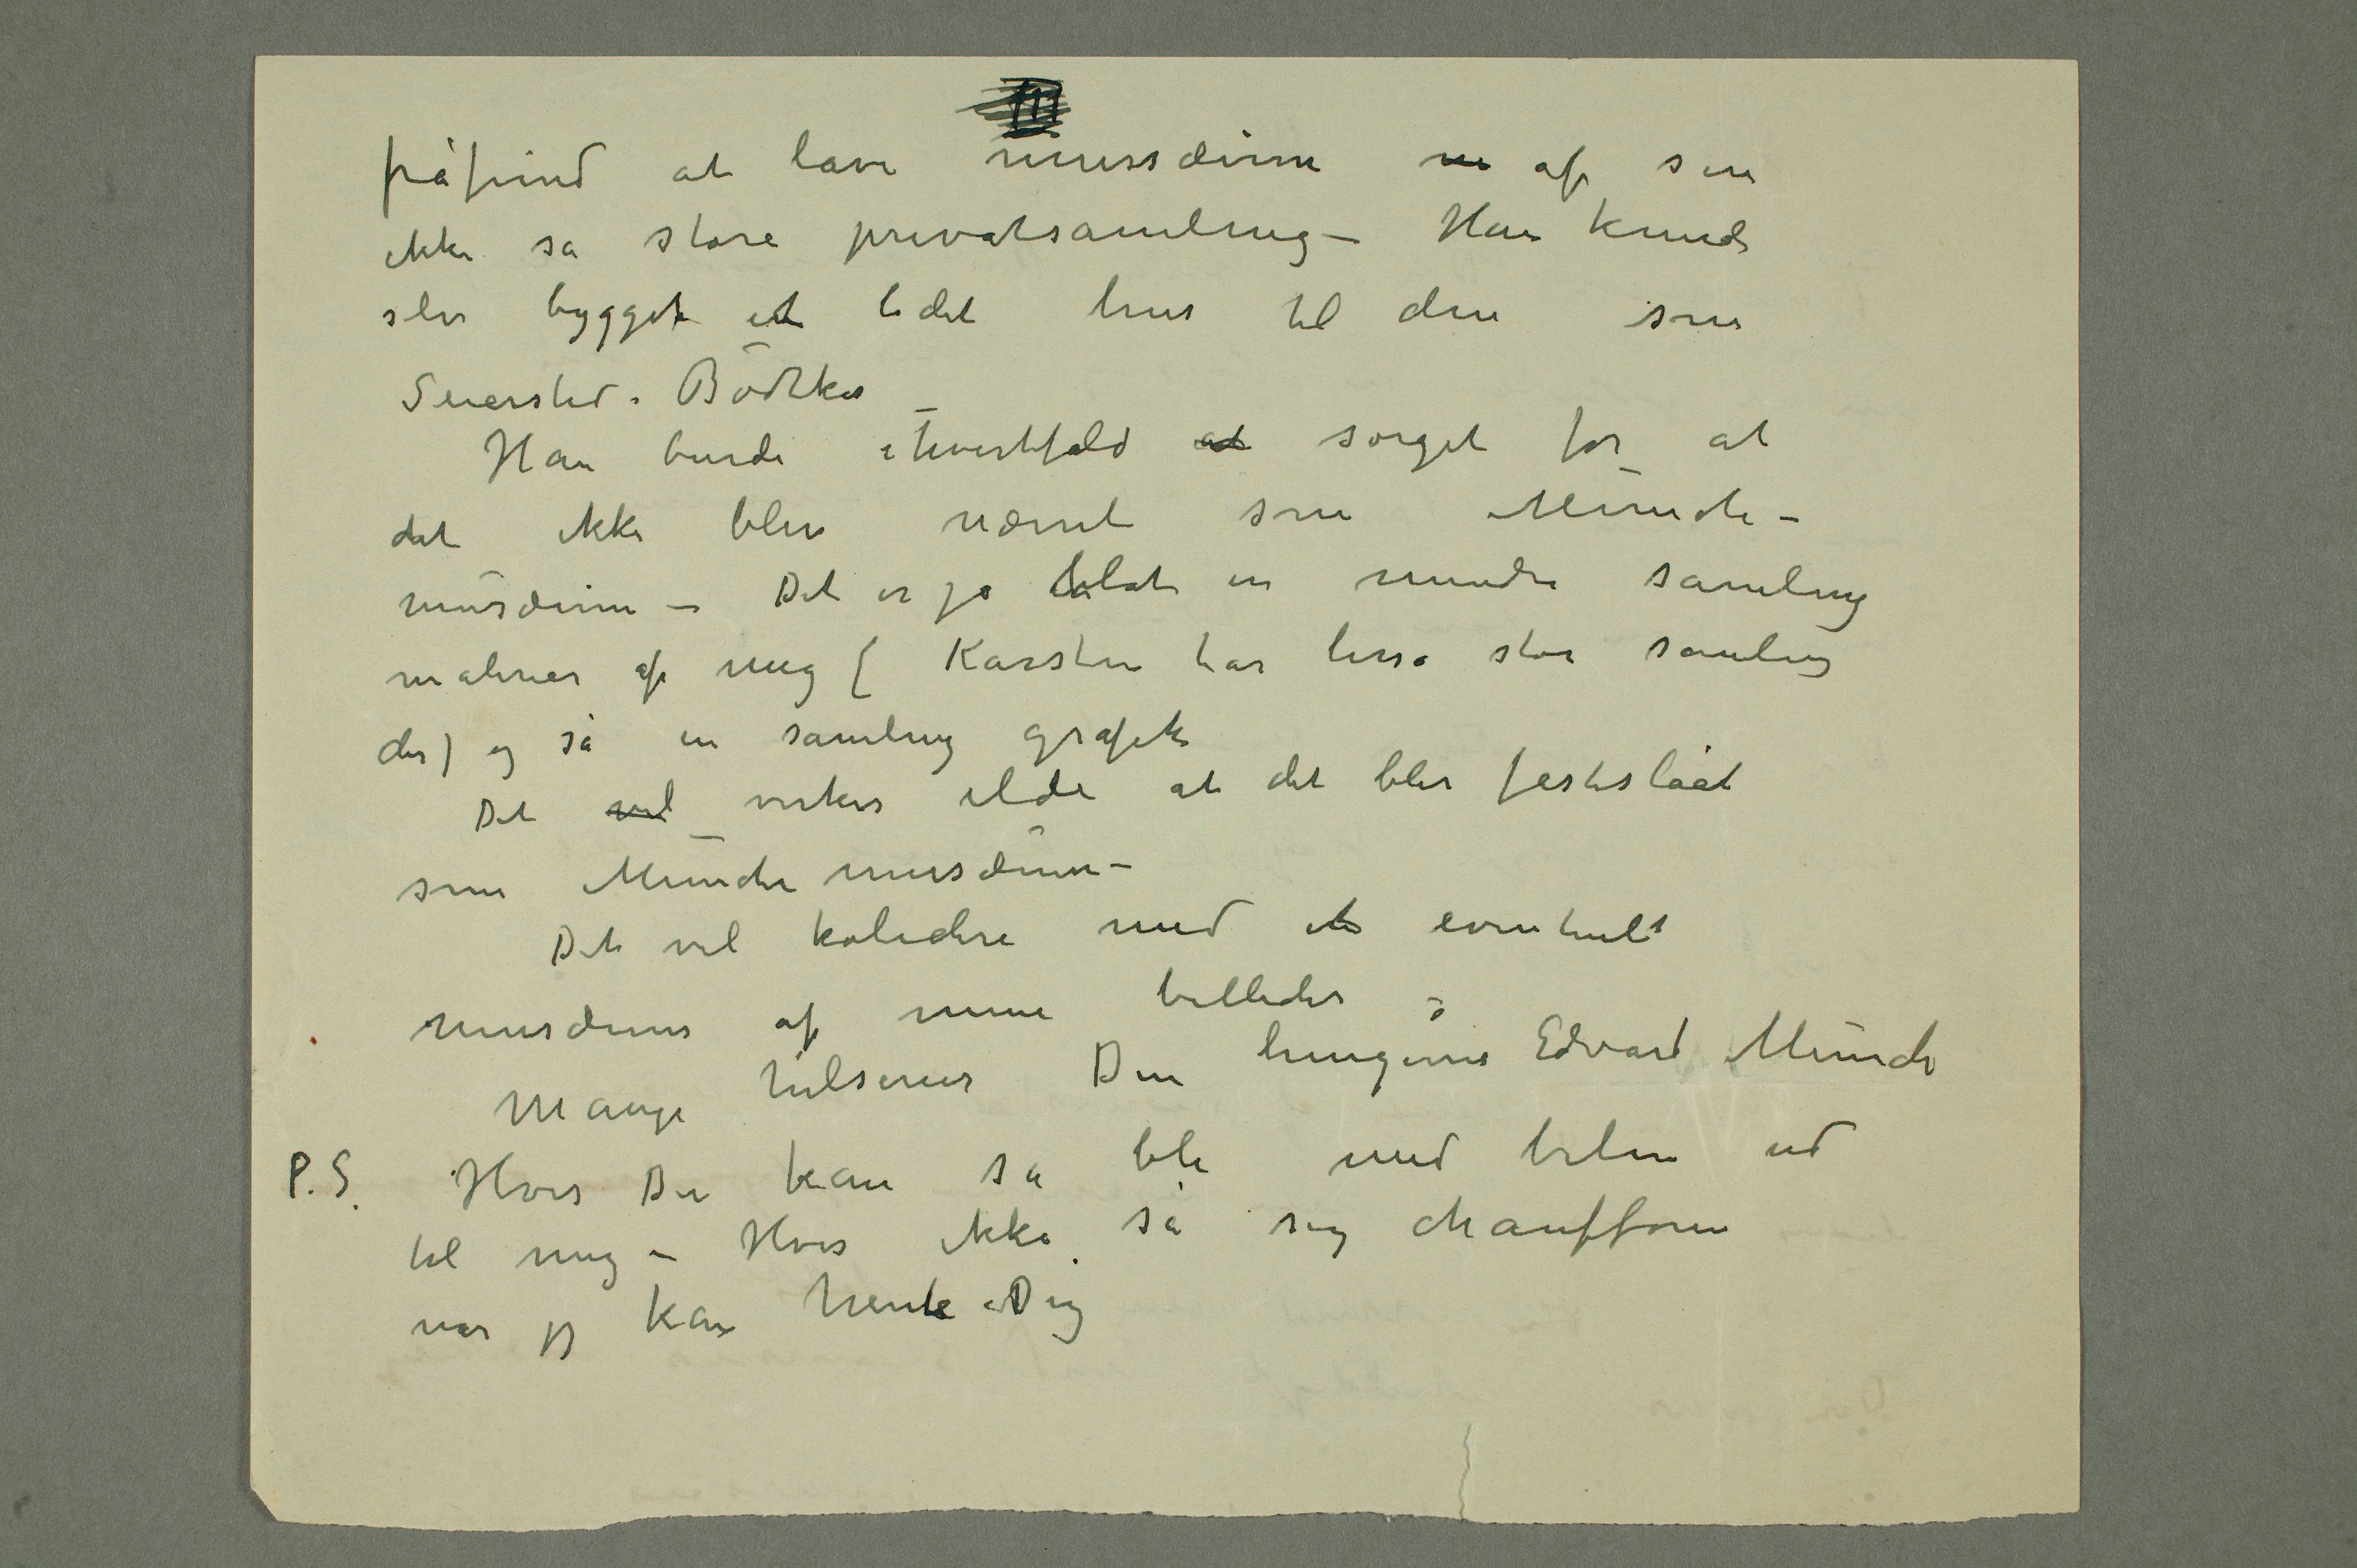 påfund at lave mussæum af sin
ikke så store privatsamling – Han kunde
selv bygget et lidet hus til den som
Seiersted-Bödtker
Han burde ihvertfald sörget for at
det ikke blev nævnt som Munch-
musæum – Det er jo blot en mindre samling
malerier af mig (Karsten har lisså stor samling
der) og så en samling grafik
Det virker ilde at det blir festslåat
som Munch musæum –
Det vil kolidere med et eventuelt
musæum af mine billeder
Mange hilsener Din hengivne Edvard Munch
P.S. Hvis Du kan så bli med bilen ud
til mig – Hvis ikke så sig chauffören
når jeg kan hente Dig